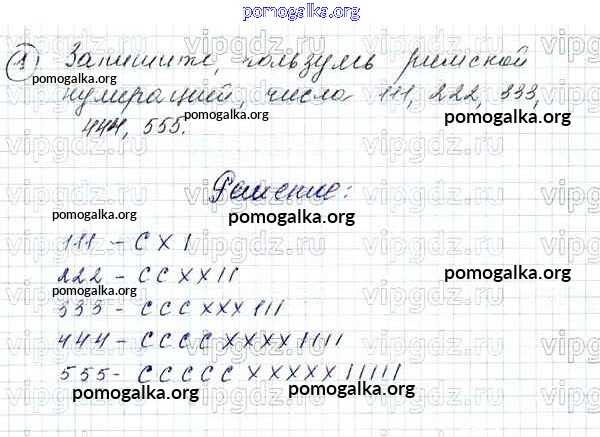 pomogalka.org
1 Запишите, пользуясь римской
pomogalka.org
нумерацией, числа 111, 222, 333,
pomogalka.org pomogalka.org
444, 555.
Решение:
pomogalka.org pomogalka.org
111 - C X I
222 - C C X X I I
pomogalka.org pomogalka.org
333 - C C C X X X I I I
444 - C C C C X X X X I I I I
555 - C C C C C X X X X X I I I I I
pomogalka.org pomogalka.org